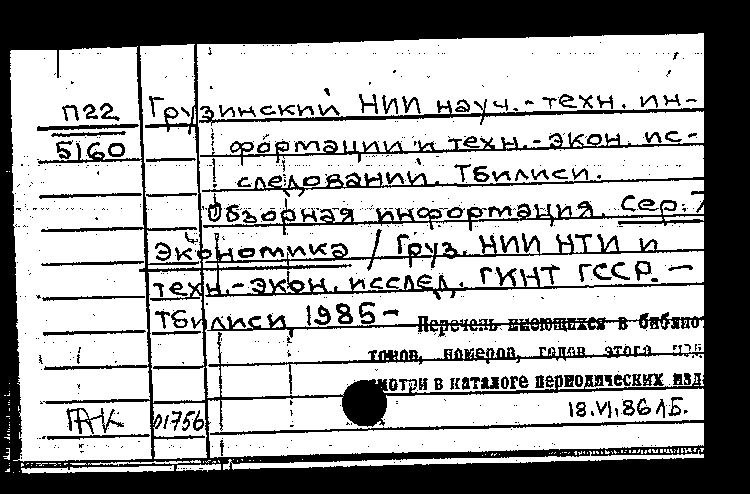 П22 Грузинский НИИ науч.-техн. ин-
5160 формации и техн.-экон. ис-
следований. Тбилиси.
Обзорная информация. Сер. 7
Экономика / Груз. НИИ НТИ и
техн.-экон. исслед. ГКНТ ГССР. —
Тбилиси, 1985-
Перечень имеющихся в библио
томов, номеров, годов этого изд
смотри в каталоге периодических изда
01756 18.VI.86 ЛБ.